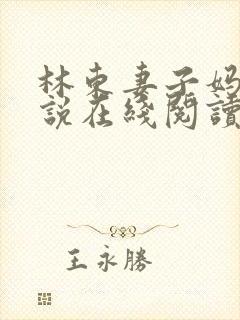 林东妻子妈
說在綫閱讀
王永勝